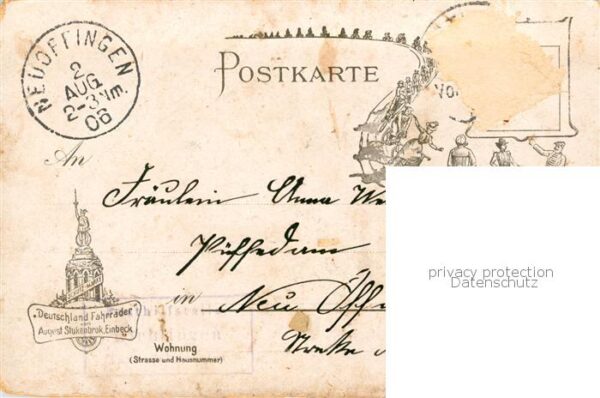 NEUOFFINGEN
2
AUG
2-3 Nm.
06
POSTKARTE
An
Fräulein Anna We
in Neu Öff
privacy protection
Datenschutz
"Deutschland Fahrräder"
von
August Stukenbrok, Einbeck
Wohnung
(Strasse und Hausnummer)